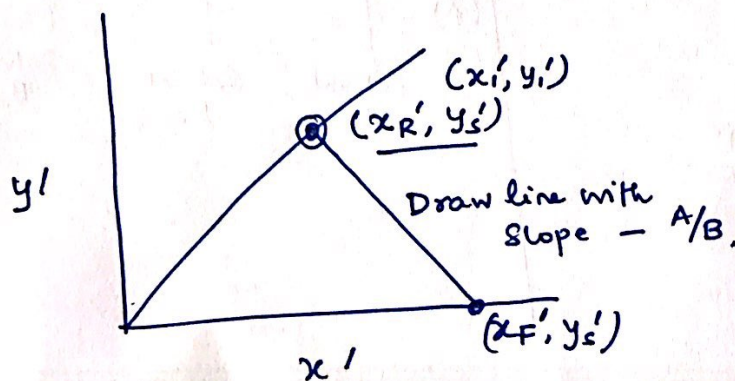 (x₁', y₁')
(x_R', y_s')
y'
Draw line with
slope - A/B.
(x_F', y_s')
x'